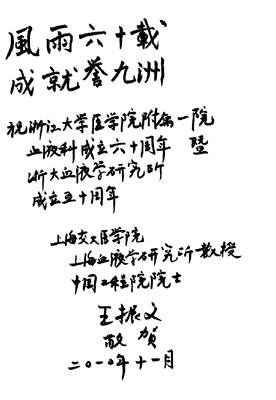 風雨六十載
成就誉九洲
祝浙江大学医学院附属一院
血液科成立六十周年 暨
浙大血液学研究所
成立五十周年
上海交大医学院
上海血液学研究所教授
中国工程院院士
王振义
敬贺
二〇一〇年十一月